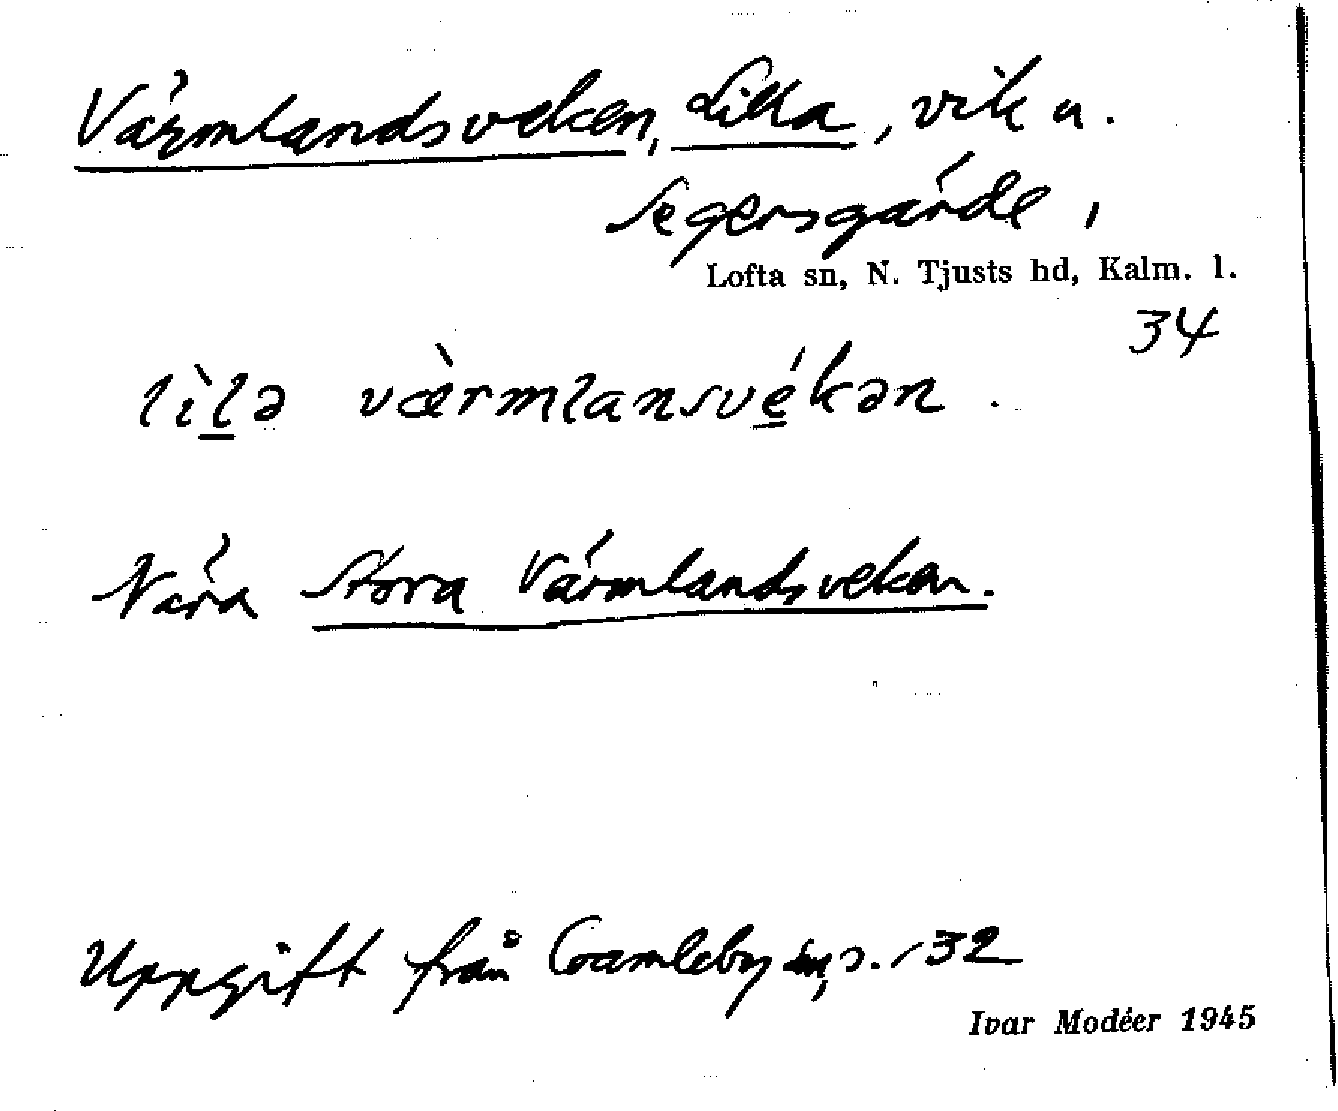 Värmlandsveken, Lilla, vik u.
Segersgärde,
Lofta sn, N. Tjusts hd, Kalm. l.
34
lìlə værmlansvékən.
Nära Stora Värmlandsveken.
Uppgift från Gamleby sn, s. 132
Ivar Modéer 1945